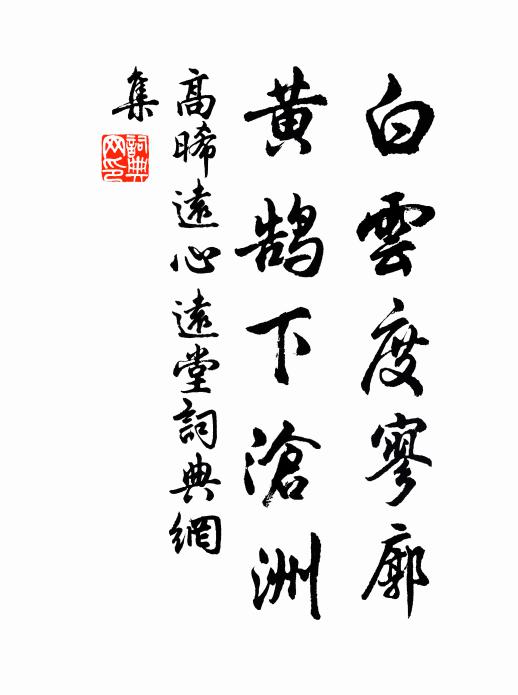 白雲度寥廓
黄鹄下滄洲
高晞遠心遠堂詞典網
集
詞典網印